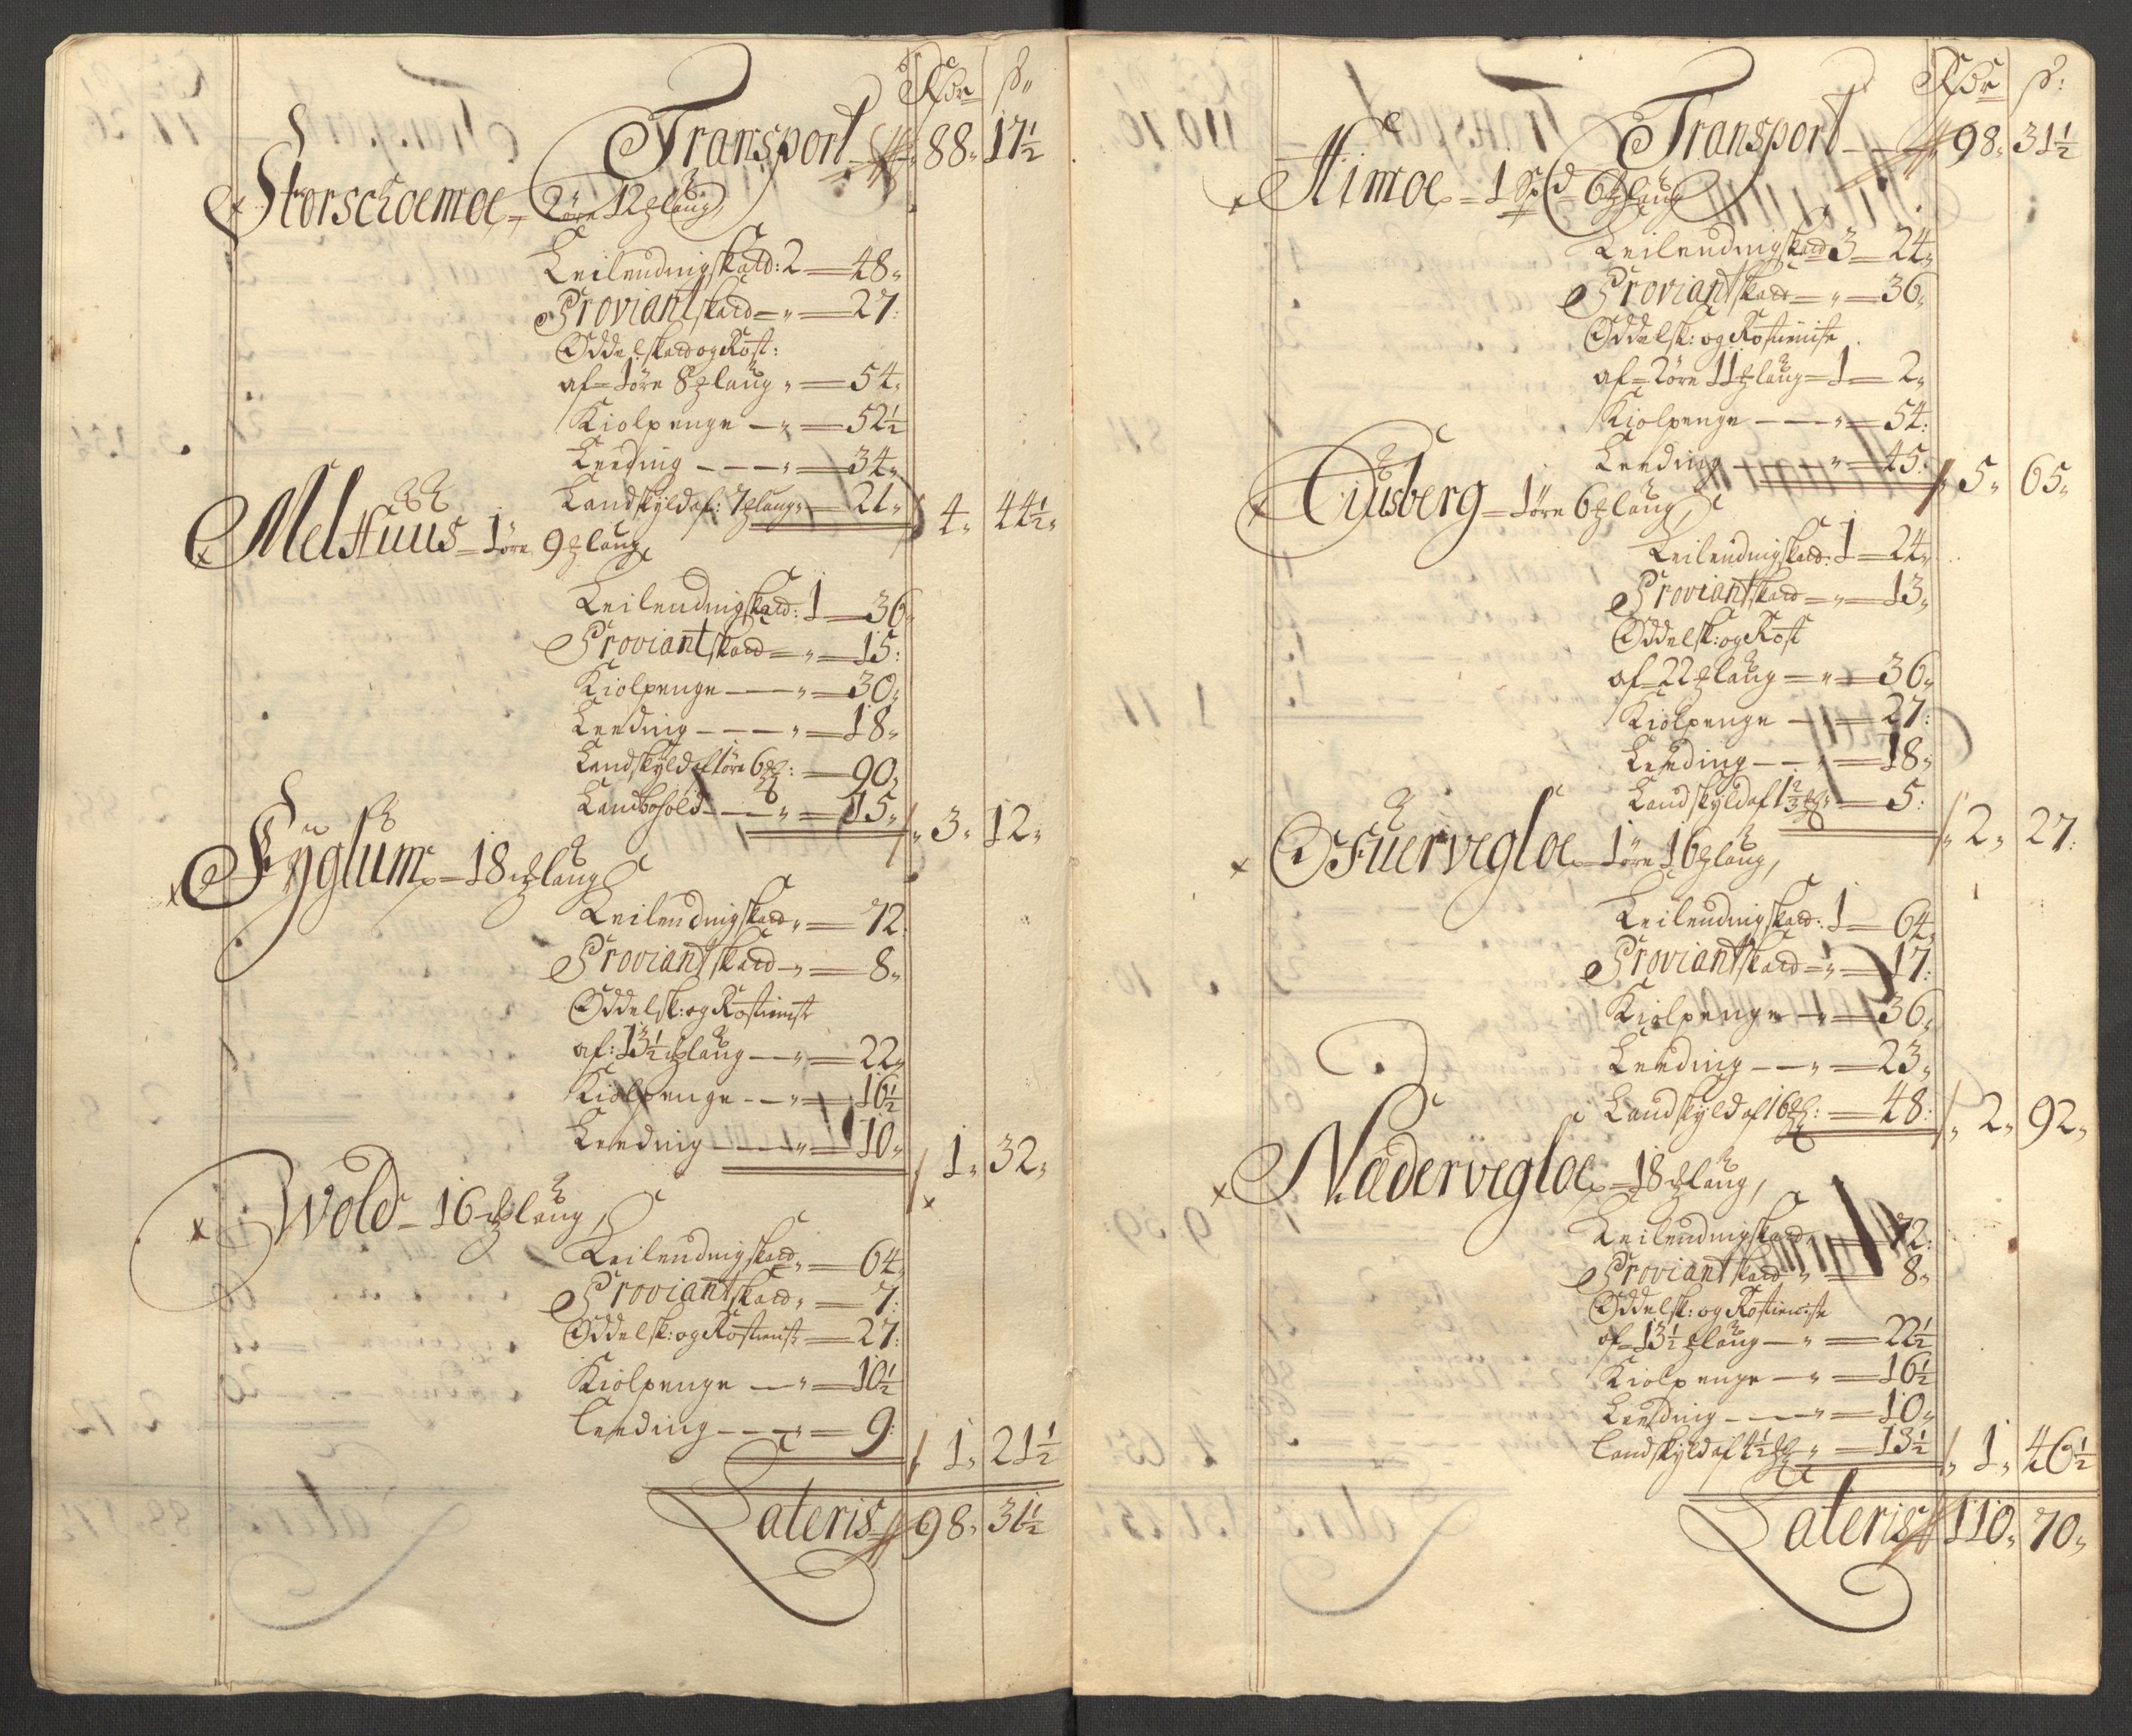 Rdr ß
Transport 88 17½
Storschoemoe = 2 öre 12 ℔laug
Leilendingskatd: 2 — 48
Proviantskatd — „ — 27
Oddelskatd og Rost:
af = 1 öre 8 ℔laug „ — 54
Kiolpenge — „ — 52½
Leeding — „ — 34
Landskyld af: 7 ℔laug — 21 4 44½
MelHuus = 1 öre 9 ℔laug
Leilendingskatd: 1 — 36
Proviantskatd — „ — 15
Kiolpenge — „ — 30
Leeding — „ — 18
Landskyld af 1 öre 6 ℔l: — 90
Landbohold — „ — 15 3 12
Fyglum = 18 ℔laug
Leilendingskatd „ — 72
Proviantskatd „ — 8
Oddelsk: og Rostienist
af: 13½ ℔laug — „ — 22
Kiolpenge — „ — 16½
Leeding — „ — 10 1 32
Wold = 16 ℔laug
Leilendingskatd „ — 64
Proviantskatd „ — 7
Oddelsk: og Rostienist — 27
Kiolpenge — „ — 10½
Leeding — „ — 9 1 21½
Lateris 98 31½
Rdr ß:
Transport 98 31½
Himoe = 1 Spd 6 ℔laug
Leilendingskatd 3 — 24
Proviantskatd — „ — 36
Oddelsk: og Rostieniste
af = 2 öre 11 ℔laug = 1 — 2
Kiolpenge — „ — 54
Leeding — „ — 45 5 65
Eidsberg = 1 öre 6 ℔laug,
Leilendingskatd: 1 — 24
Proviantskatd — „ — 13
Oddelsk: og Rost
af = 22 ℔laug — „ — 36
Kiolpenge — „ — 27
Leeding — „ — 18
Landskyld af 1⅔ ℔l „ — 5 2 27
Ofuervegloe = 1 öre 16 ℔laug,
Leilendingskatd: 1 — 64
Proviantskatd — „ — 17
Kiolpenge — „ — 36
Leeding — „ — 23
Landskyld af 16 ℔l: — 48 2 92
Nædervegloe = 18 ℔laug,
Leilendingskatd „ — 72
Proviantskatd „ — 8
Oddelsk: og Rostieniste
af = 13½ ℔laug — „ — 22½
Kiolpenge — „ — 16½
Leeding — „ — 10
Landskyld af 4½ ℔l „ — 13½ 1 46½
Lateris 110 70